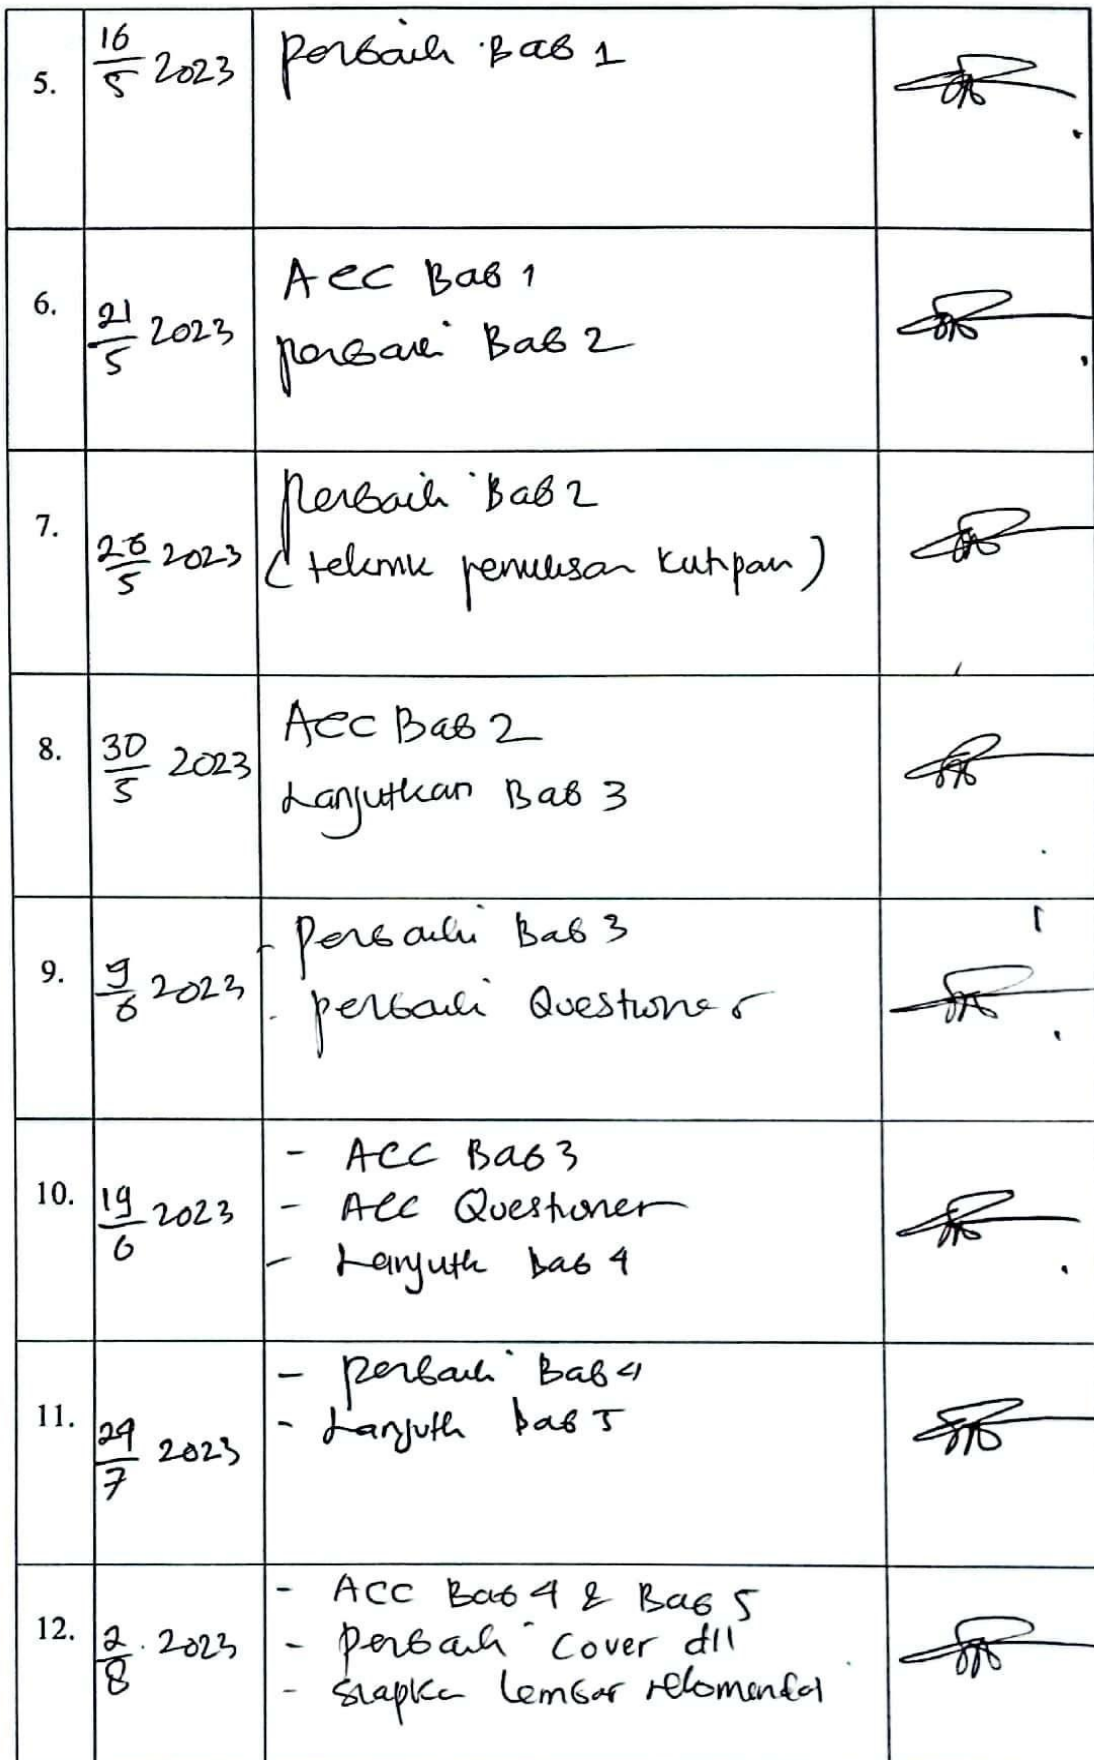 5. 16/5 2023 Perbaiki Bab 1
6. 21/5 2023 ACC Bab 1
perbaiki Bab 2
7. 26/5 2023 Perbaiki Bab 2
(teknik penulisan kutipan)
8. 30/5 2023 ACC Bab 2
Lanjutkan Bab 3
9. 9/6 2023 - Perbaiki Bab 3
- perbaiki Questioner
10. 19/6 2023 - ACC Bab 3
- ACC Questioner
- Lanjutk Bab 4
11. 29/7 2023 - perbaiki Bab 4
- Lanjutk bab 5
12. 2/8 2023 - ACC Bab 4 & Bab 5
- Perbaiki Cover dll
- siapka lembar rekomendasi